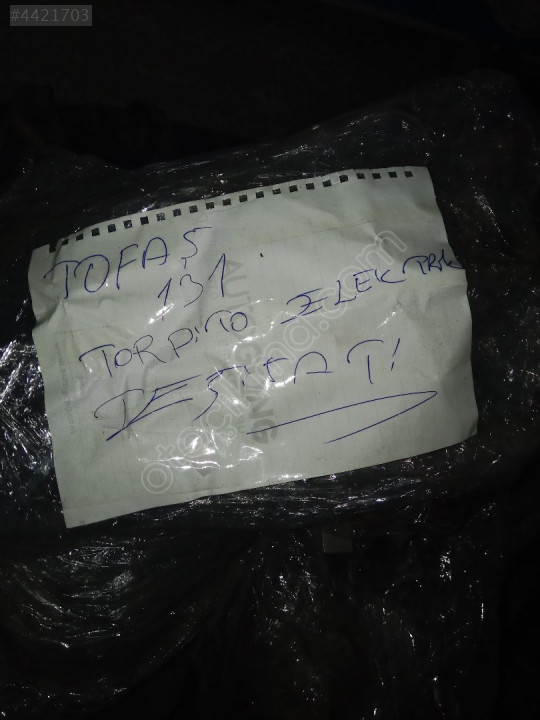 #4421703
TOFAŞ
131
TORPİTO ELEKTRİK
TESİSATI
otocikma.com